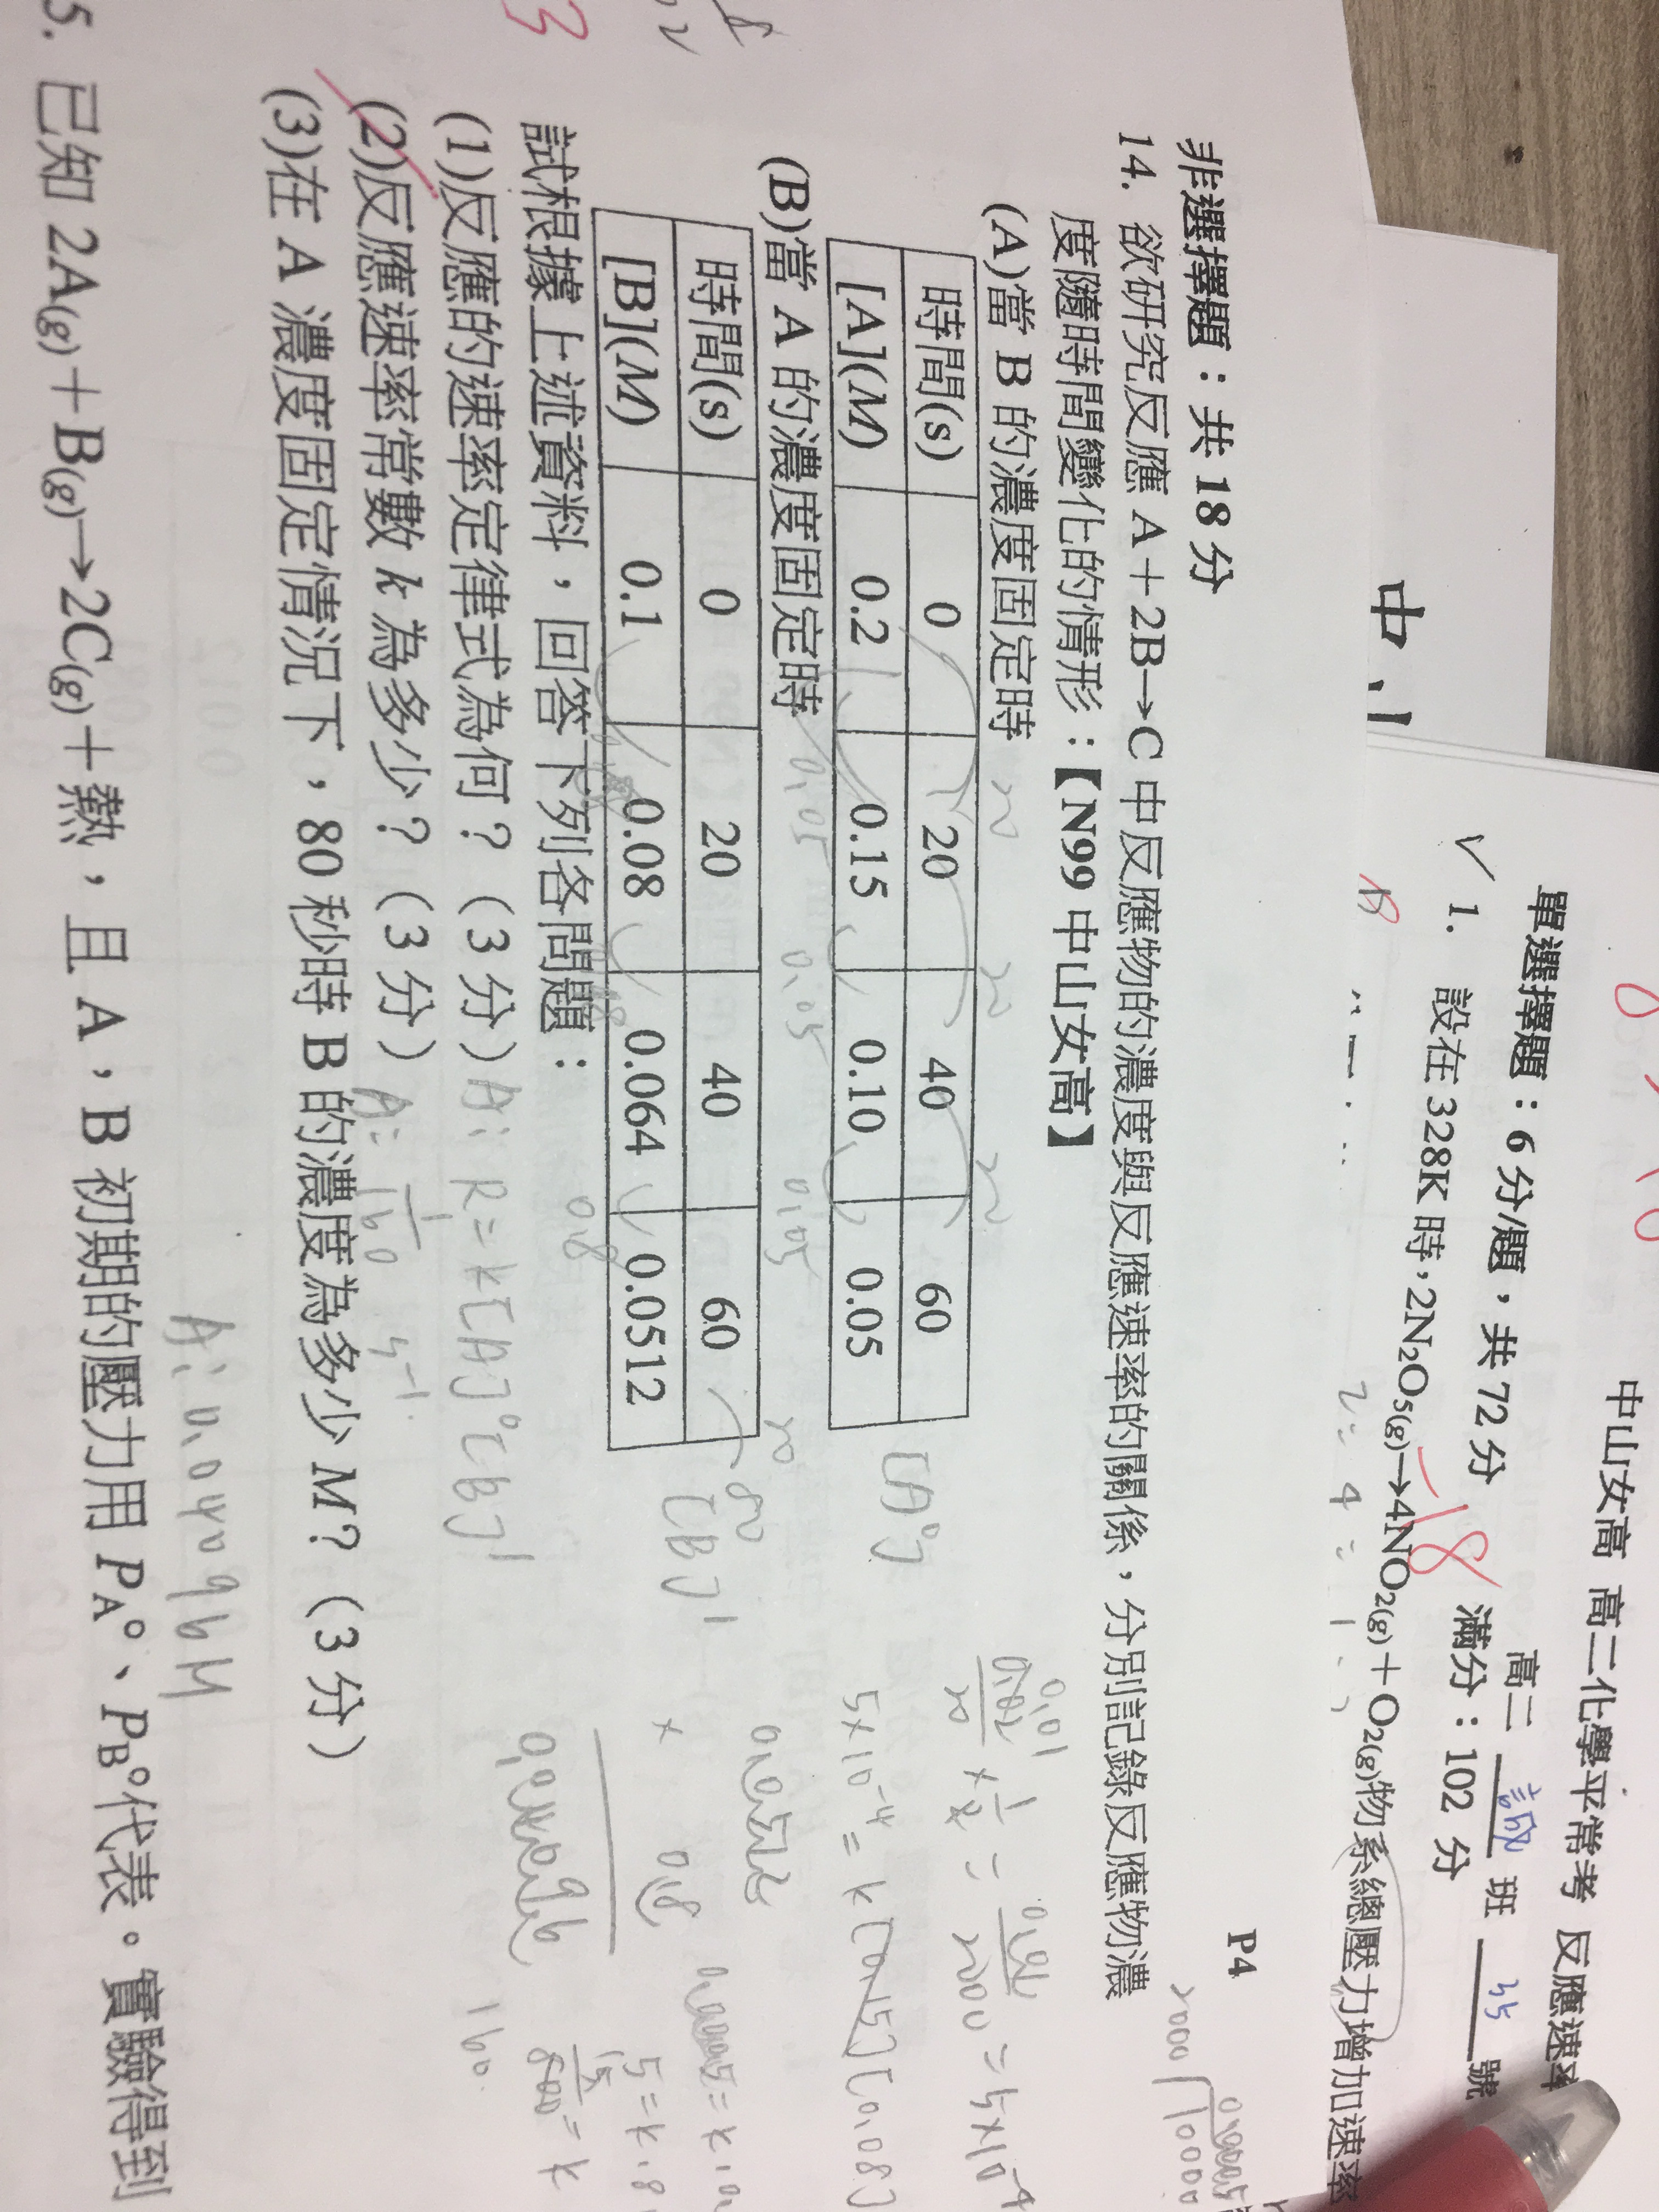 中山女高 高二化學平常考 反應速率
高二 誠 班 35 號
單選擇題：6分/題，共72分 滿分：102 分
1. 設在328K時，2N₂O₅(g)→4NO₂(g)＋O₂(g)物系總壓力增加速率
中 山
P4
非選擇題：共 18 分
14. 欲研究反應 A＋2B→C 中反應物的濃度與反應速率的關係，分別記錄反應物濃
度隨時間變化的情形：【N99 中山女高】
(A)當 B 的濃度固定時
時間(s) 0 20 40 60
[A](M) 0.2 0.15 0.10 0.05
[A]⁰
0.05 0.05 0.05
(B)當 A 的濃度固定時
時間(s) 0 20 40 60
[B](M) 0.1 0.08 0.064 0.0512
80
[B]¹
試根據上述資料，回答下列各問題：
(1)反應的速率定律式為何？（3 分）A: R=k[A]⁰[B]¹
(2)反應速率常數 k 為多少？（3 分）A: 1/160 s⁻¹
(3)在 A 濃度固定情況下，80 秒時 B 的濃度為多少 M？（3 分）
A: 0.04096M
5×10⁻⁴=k[0.15][0.08]
0.0512
× 0.8
160
5. 已知 2A(g)＋B(g)→2C(g)＋熱，且 A，B 初期的壓力用 PA°、PB°代表。實驗得到